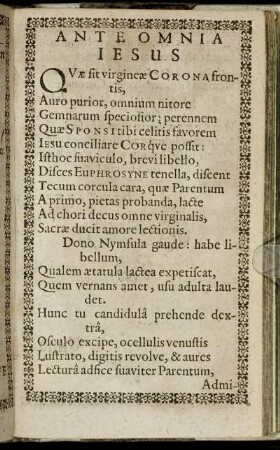 ANTE OMNIA
IESUS
QVÆ sit virgineæ CORONA fron-
tis,
Auro purior, omnium nitore
Gemnarum speciosior; perennem
Quæ SPONSI tibi cælitis favorem
IESU conciliare CORq́ve possit:
Isthoc suaviculo, brevi libello,
Disces EUPHROSYNE tenella, discent
Tecum corcula cara, quæ Parentum
A primo, pietas probanda, lacte
Ad chori decus omne virginalis,
Sacræ ducit amore lectionis.
Dono Nymfula gaude: habe li-
bellum,
Qualem ætatula lactea expetiscat,
Quem vernans amet, usu adulta lau-
det.
Hunc tu candidulâ prehende dex-
trâ,
Osculo excipe, ocellulis venustis
Lustrato, digitis revolve, & aures
Lecturâ adfice suaviter Parentum,
Admi-